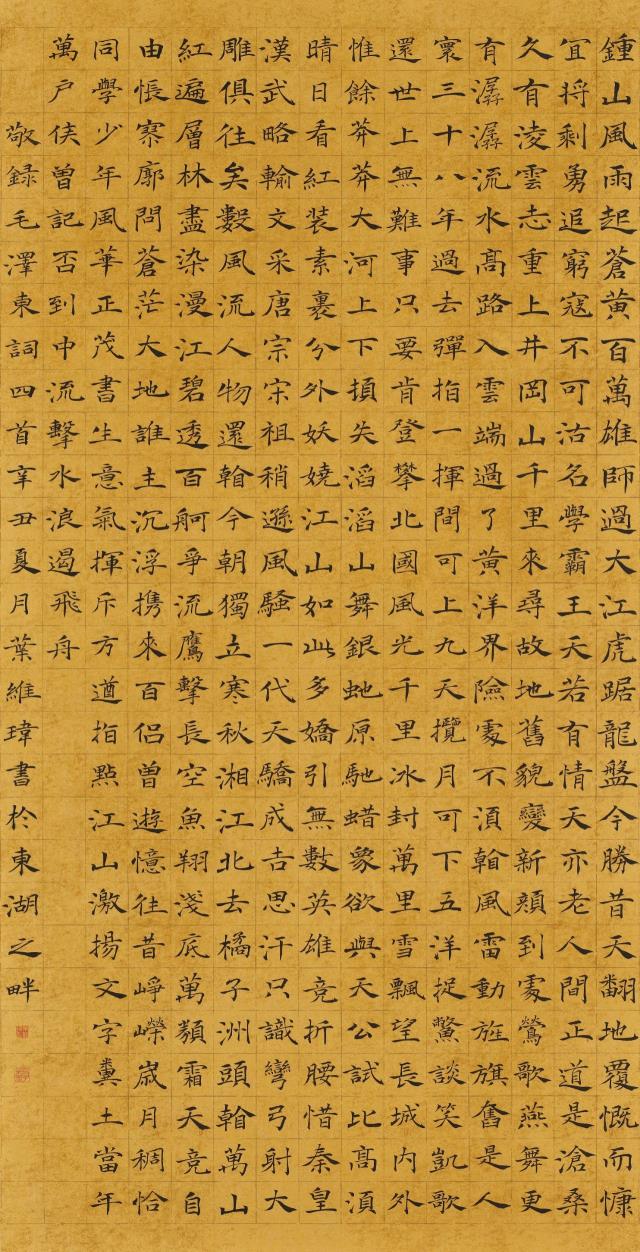 鍾山風雨起蒼黃百萬雄師過大江虎踞龍盤今勝昔天翻地覆慨而慷
宜将剩勇追窮寇不可沽名學霸王天若有情天亦老人間正道是滄桑
久有凌雲志重上井岡山千里來尋故地舊貌變新顔到處鶯歌燕舞更
有潺潺流水高路入雲端過了黃洋界險處不須看風雷動旌旗奮是人
寰三十八年過去彈指一揮間可上九天攬月可下五洋捉鱉談笑凱歌
還世上無難事只要肯登攀北國風光千里冰封萬里雪飄望長城内外
惟餘莽莽大河上下頓失滔滔山舞銀虵原馳蜡象欲與天公試比高須
晴日看紅裝素裹分外妖嬈江山如此多嬌引無數英雄竞折腰惜秦皇
漢武略輸文采唐宗宋祖稍遜風騷一代天驕成吉思汗只識彎弓射大
雕俱往矣數風流人物還看今朝獨立寒秋湘江北去橘子洲頭看萬山
紅遍層林盡染漫江碧透百舸爭流鷹擊長空魚翔淺底萬類霜天竞自
由悵寥廓問蒼茫大地誰主沉浮携來百侶曾遊憶往昔崢嶸歲月稠恰
同學少年風華正茂書生意氣揮斥方遒指點江山激揚文字糞土當年
萬户侯曾記否到中流擊水浪遏飛舟
敬録毛澤東詞四首辛丑夏月葉維瑋書於東湖之畔